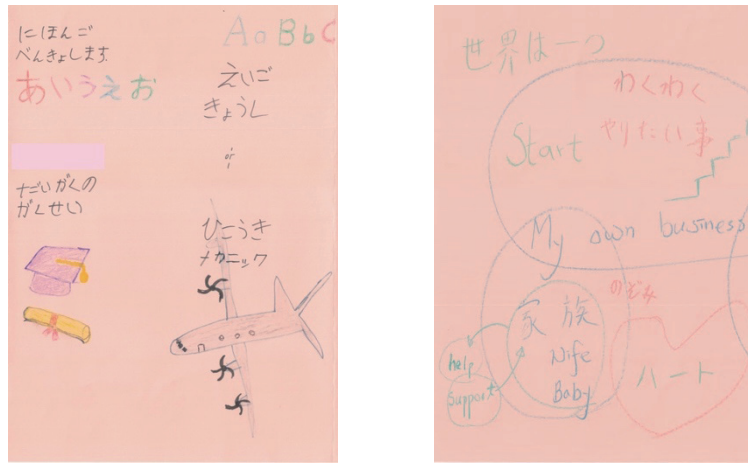 にほんご
べんきょします.
あいうえお
だいがくの
がくせい
AaBbC
えいご
きょうし
or
ひこうき
メカニック
世界は一つ
わくわく
やりたい事
Start
My own business
のぞみ
家族
Wife
Baby
help
support
ハート